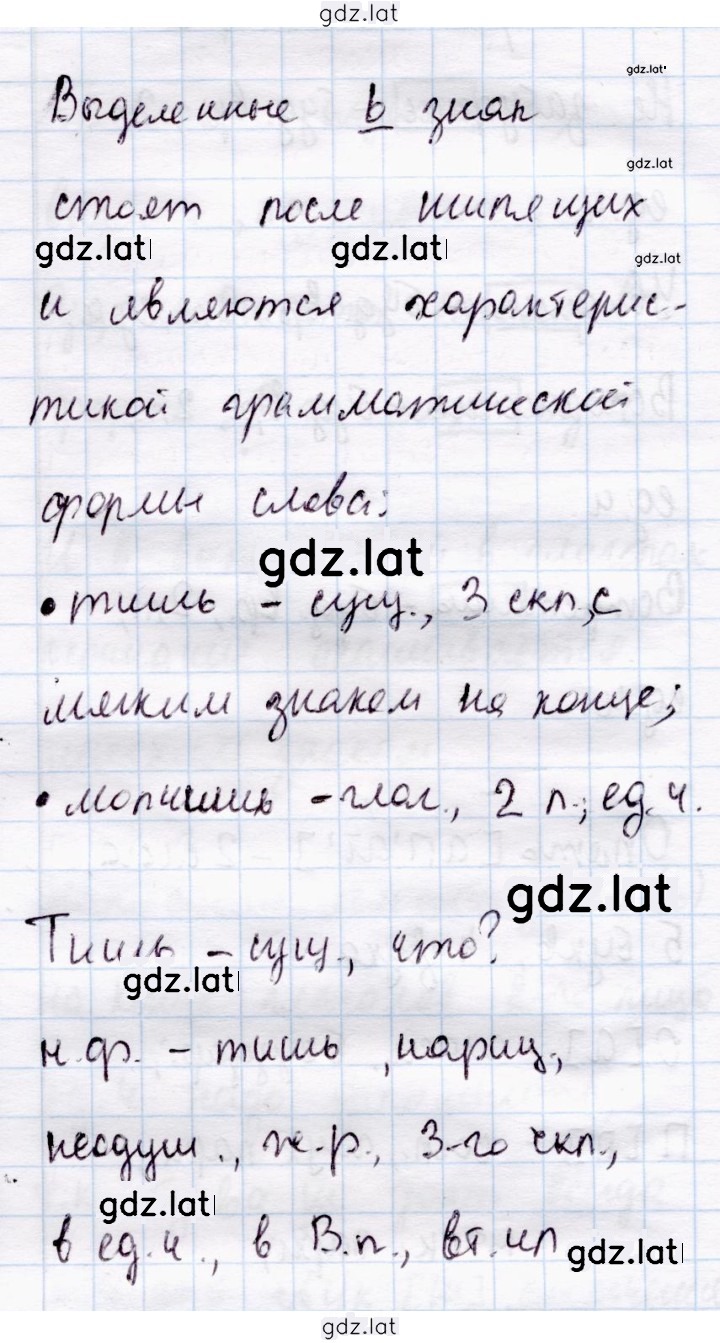 gdz.lat
gdz.lat
Выделенные ь знак
gdz.lat
стоят после шипящих
gdz.lat gdz.lat gdz.lat
и являются характерис-
тикой грамматической
формы слова:
gdz.lat
• тишь - сущ., 3 скл, с
мягким знаком на конце;
• молчишь - глаг., 2 л., ед.ч.
gdz.lat
Тишь - сущ., что?
gdz.lat
н.ф. - тишь, нариц.,
неодуш., ж.р., 3-го скл.,
gdz.lat
в ед.ч., в В.п., вт. чл
gdz.lat
gdz.lat